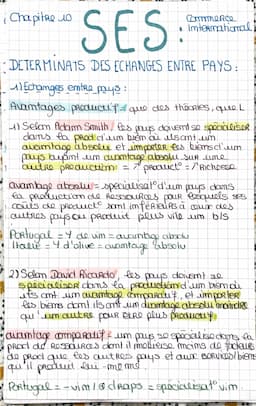 Chapitre 10
SES :
Commerce
international
DETERMINATS DES ECHANGES ENTRE PAYS :
1) Echanges entre pays :
Avantages productif = que des théories, que L
1) Selon Adam Smith, les pays doivent se spécialiser
dans la prod° d'um bien où ils ont um
avantage absolu et importer les biens d'um
pays ayant um avantage absolu sur une
autre production = ↗ product° = ↗ richesse
avantage absolu = spécialisat° d'um pays dans
la production de ressources pour lesquels ses
coûts de product° sont inférieurs à ceux des
autres pays ou produit plus vite um b/s
Portugal = Y de vim = avantage absolu
Italie = Y d'olive = avantage absolu
2) Selon David Ricardo, les pays doivent se
spécialiser dans la production d'um bien où
ils ont um avantage comparatif, et importer
les biens dont ils ont um avantage absolu moindre
qu'um autre pour être plus productif
avantage comparatif = um pays se spécialise dans la
prod de ressources dont il maîtrise moins de
de prod que les autres pays et aux services/biens
qu'il produit lui-même.
Portugal = - vim / ⊕ draps = spécialisat° vim